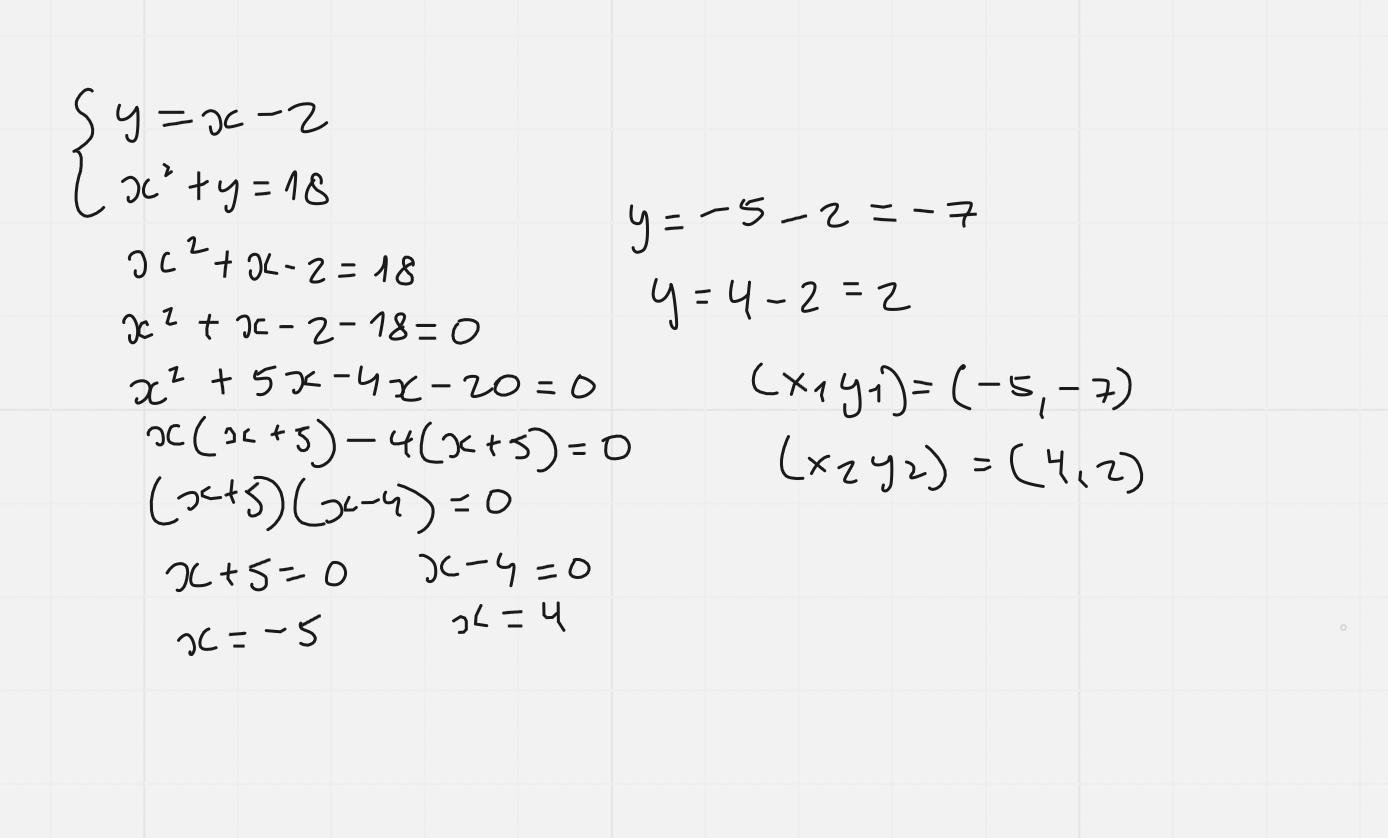 { y = x - 2
x² + y = 18
x² + x - 2 = 18
x² + x - 2 - 18 = 0
x² + 5x - 4x - 20 = 0
x(x + 5) - 4(x + 5) = 0
(x+5)(x-4) = 0
x + 5 = 0 x - 4 = 0
x = -5 x = 4
y = -5 - 2 = -7
y = 4 - 2 = 2
(x₁ y₁) = (-5, -7)
(x₂ y₂) = (4, 2)